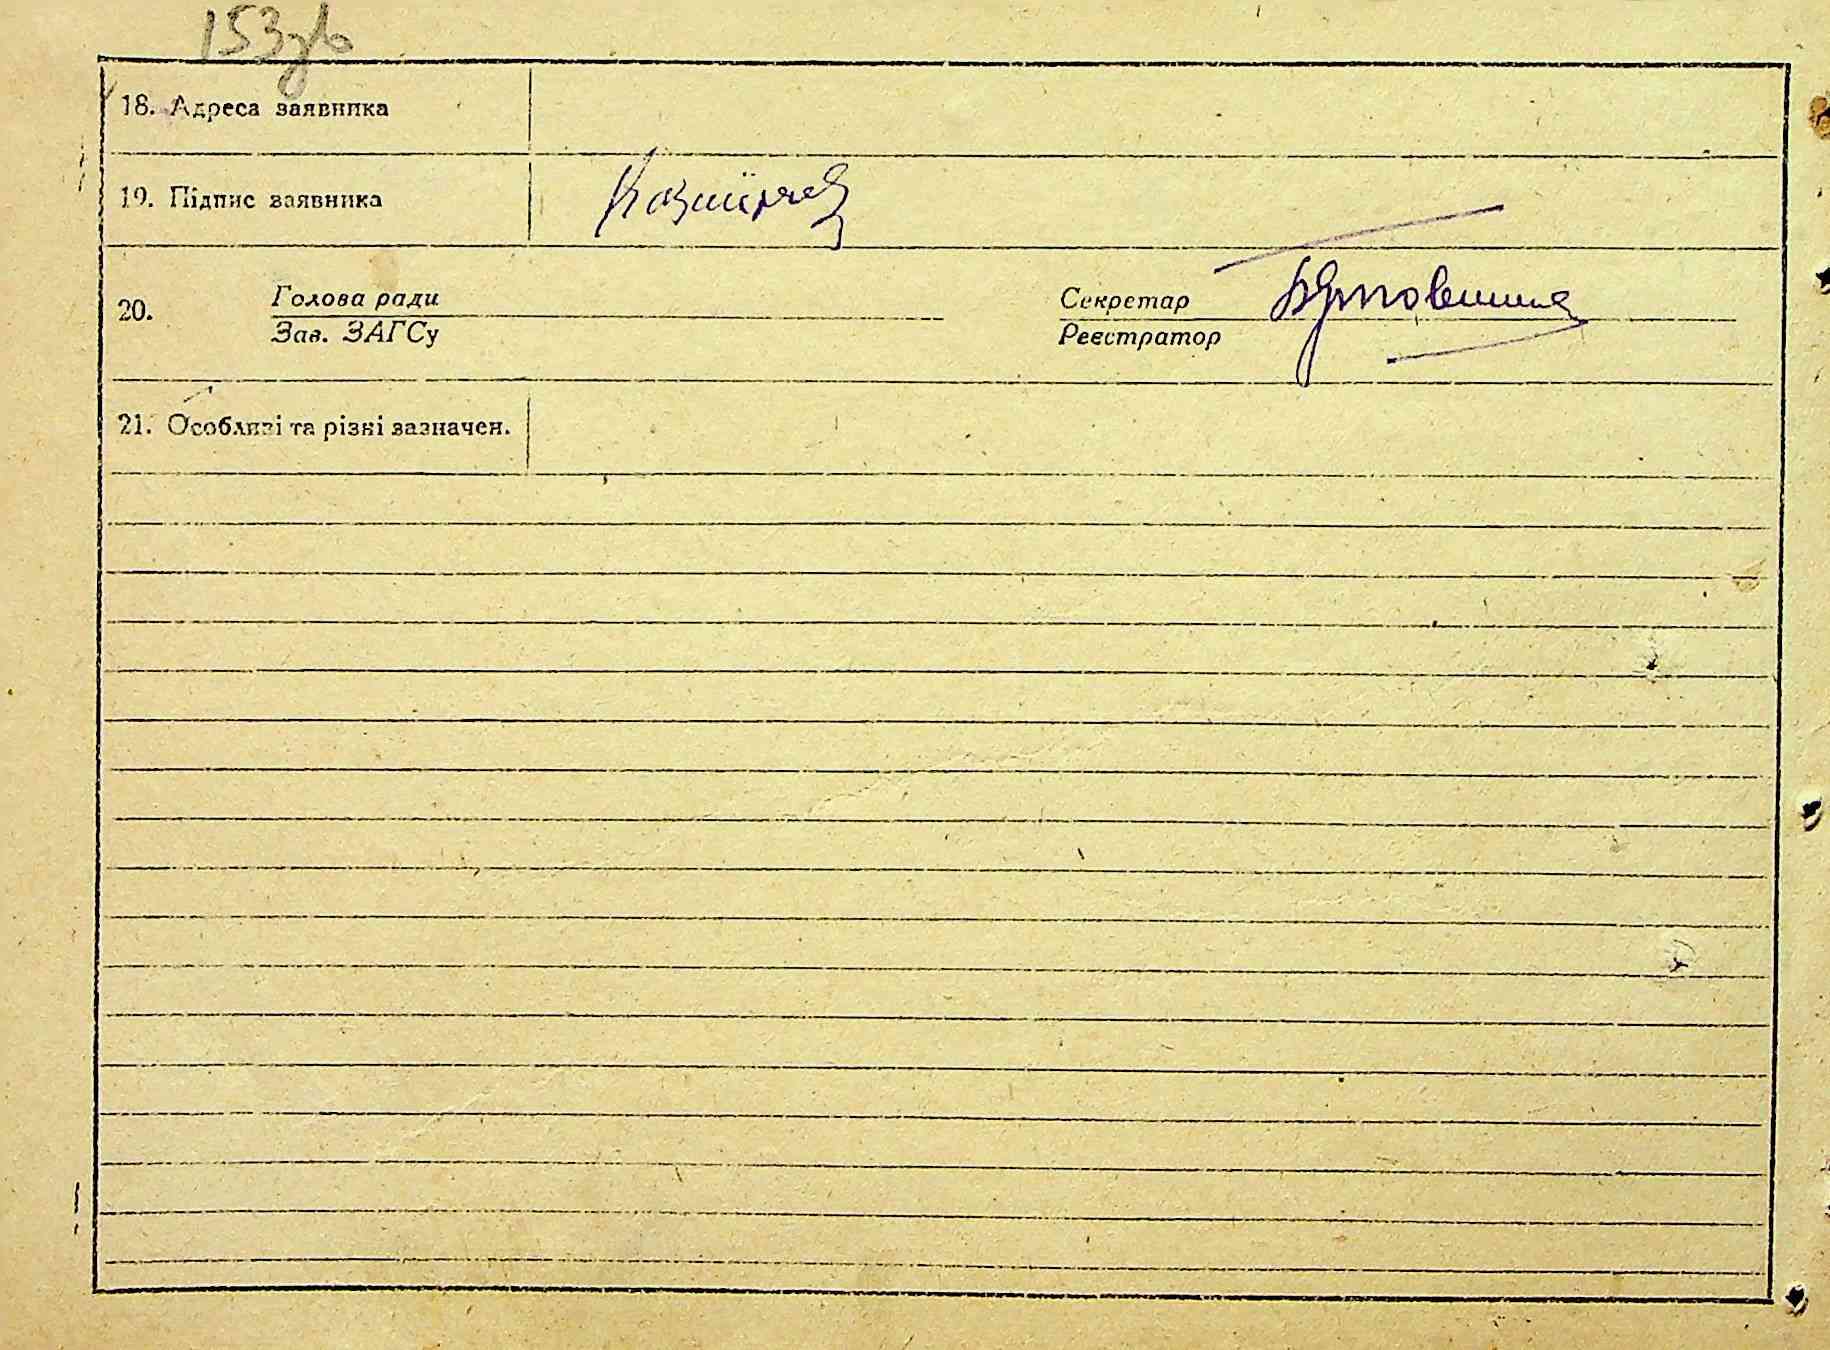 153зв
18. Адреса заявника
19. Підпис заявника
20. Голова ради Секретар
Зав. ЗАГСу Реєстратор
21. Особливі та різні зазначен.